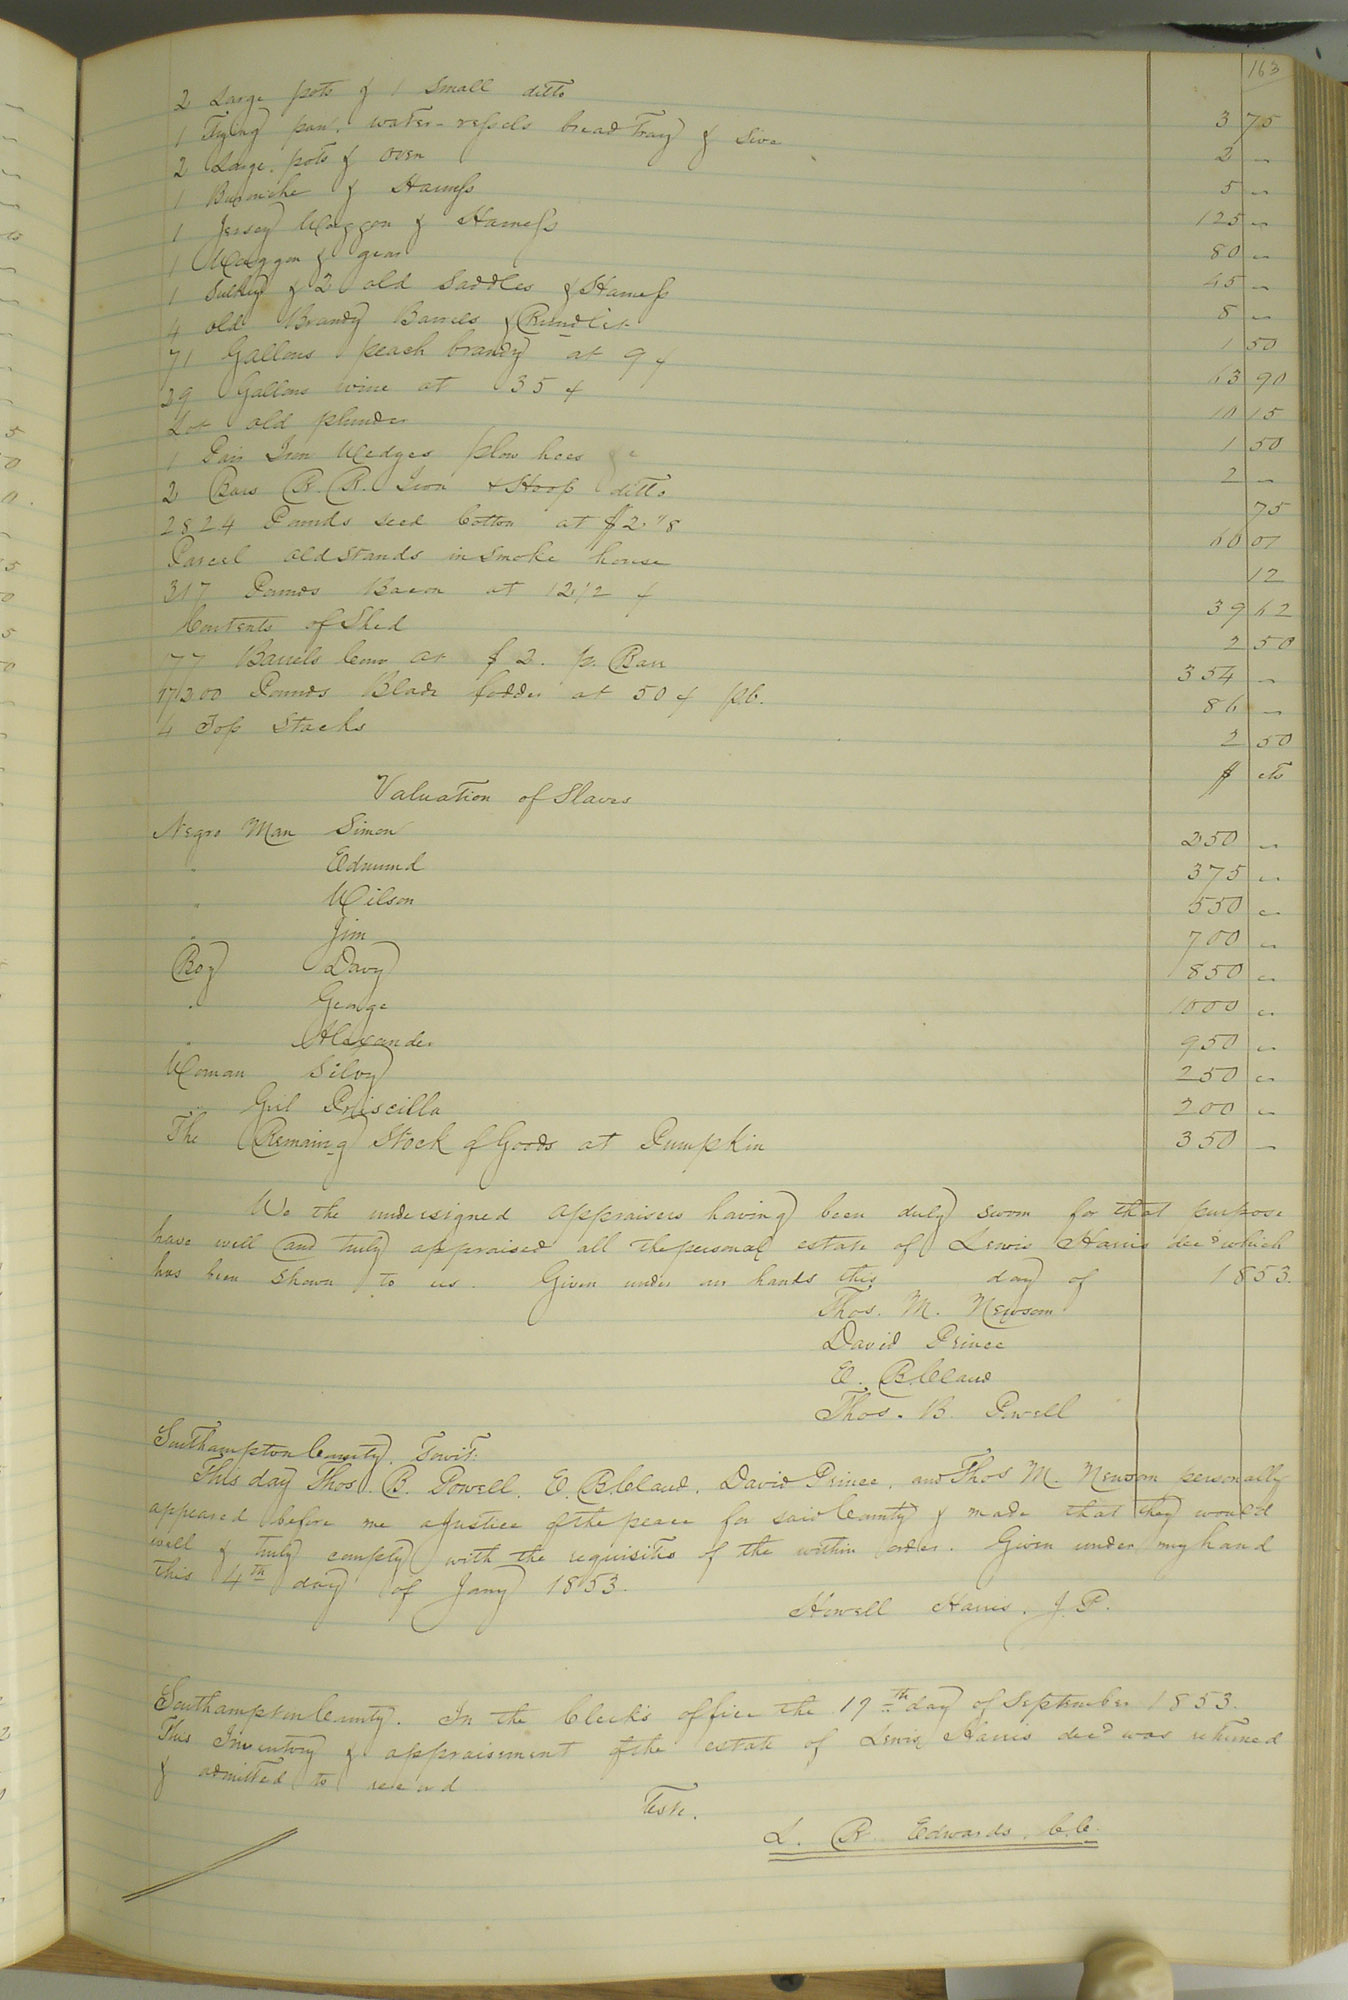 163
2 Large pots & 1 small ditto 3 75
1 Frying pan, water-vessels bread Tray & Sive 2 "
2 Large pots & oven 5 "
1 Barouche & Harness 125 "
1 Jersey Waggon & Harness 80 "
1 Waggon & gear 45 "
1 Sulkey & 2 old Saddles & Harness 8 "
4 old Brandy Barrels & Rundlet 1 50
71 Gallons peach brandy at 9 ¢ 63 90
29 Gallons wine at 35 ¢ 10 15
Lot old plunder 1 50
1 Pair Iron Wedges plow hoes &c 2 "
2 Bars R. R. Iron & Hoop ditto 75
2824 Pounds seed Cotton at $2
Parcel old stands in smoke house 12
317 Pounds Bacon at 12 1/2 ¢ 39 62
Contents of Shed 2 50
Barrels Corn at $ 2. p. Barr 354 "
17200 Pounds Blade fodder at 50 ¢ 86 "
4 Top Stacks 2 50
$ cts
Valuation of Slaves
Negro Man Simon 250 "
" Edmund 375 "
" Wilson 550 "
" Jim 700 "
Boy Davy 850 "
" George 1000 "
" Alexander 950 "
Woman Silvy 250 "
" Girl Priscilla 200 "
The Remaing Stock of Goods at Pumpkin 350 "
We the undersigned appraisers having been duly sworn for that purpose
have well and truly appraised all the personal estate of Lewis Harris decd which
has been shown to us. Given under our hands this day of 1853.
Thos. M. Newsom
David Prince
E. B. Claud
Thos. B Powell
Southampton County, Towit:
This day Thos. B. Powell, E. B. Claud, David Prince, and Thos M. Newsom personally
appeared before me a Justice of the peace for said County & made that they would
well & truly comply with the requisitio of the within order. Given under my hand
this 4th day of Jany 1853.
Howell Harris, J. P.
Southampton County. In the Clerk's office the 19th day of September 1853.
This Inventory & appraisement of the estate of Lewis Harris decd was returned
& admitted to record
Teste.
L. R. Edwards, C.C.